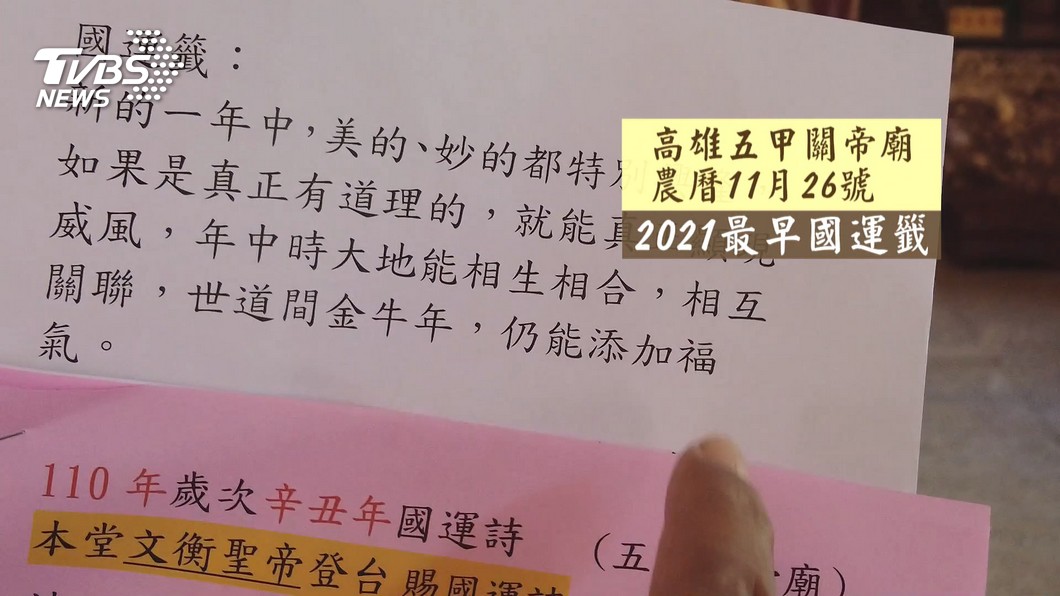 國運籤：
TVBS
NEWS
新的一年中，美的、妙的都特別
如果是真正有道理的，就能真
威風，年中時大地能相生相合，相互
關聯，世道間金牛年，仍能添加福
氣。
高雄五甲關帝廟
農曆11月26號
2021最早國運籤
110年歲次辛丑年國運詩
（五 廟）
本堂文衡聖帝登台賜國運詩